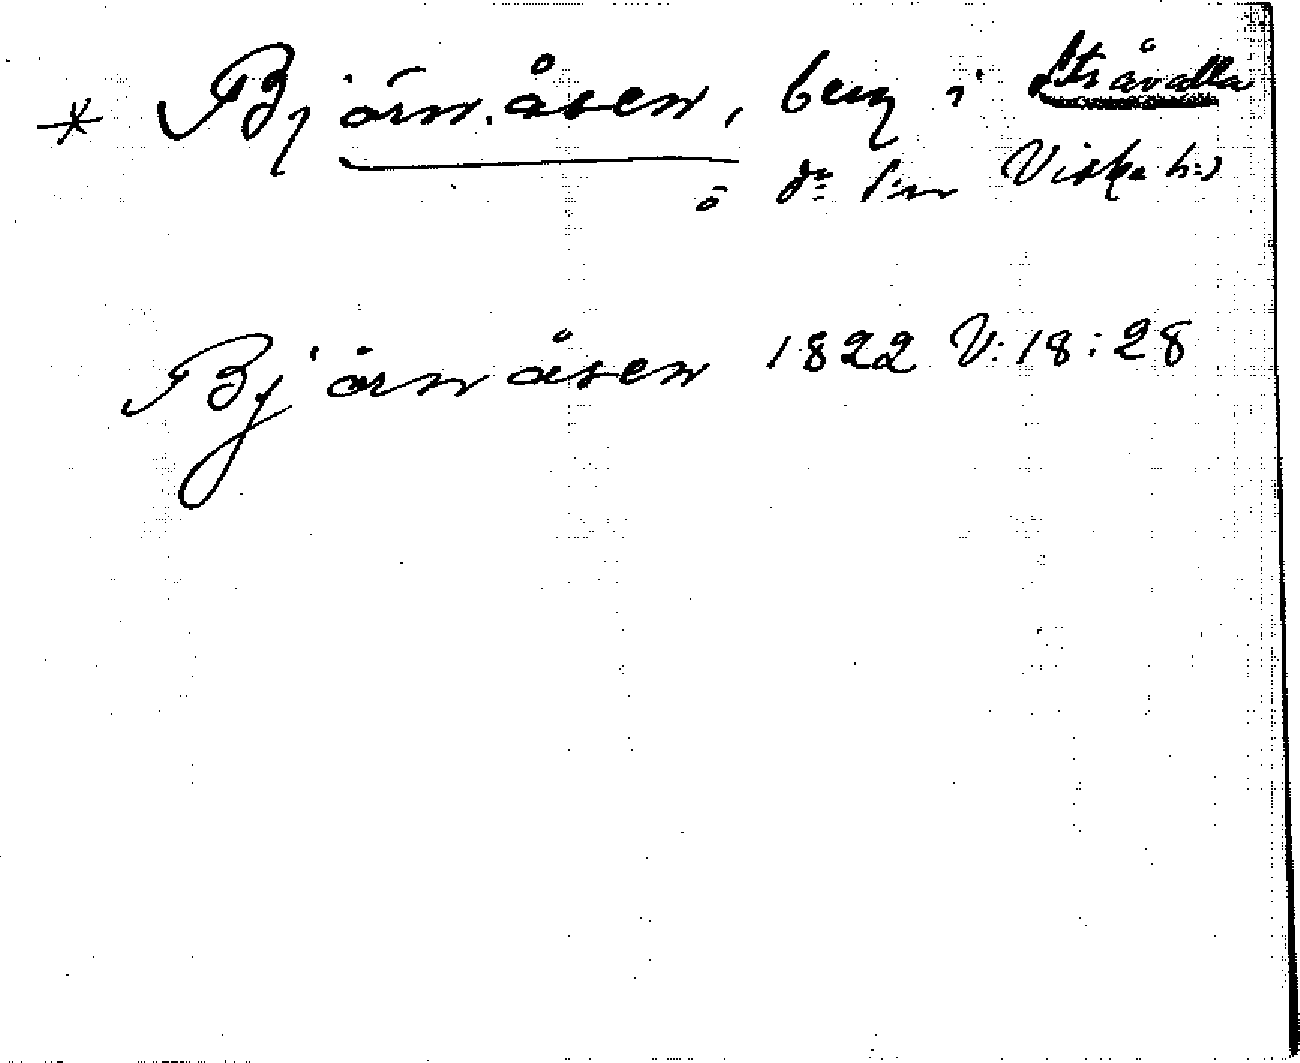 * Björnåsen, berg i Stråvalla
ö d:o s:n Viske h:d
Björnåsen 1822 V: 18: 28